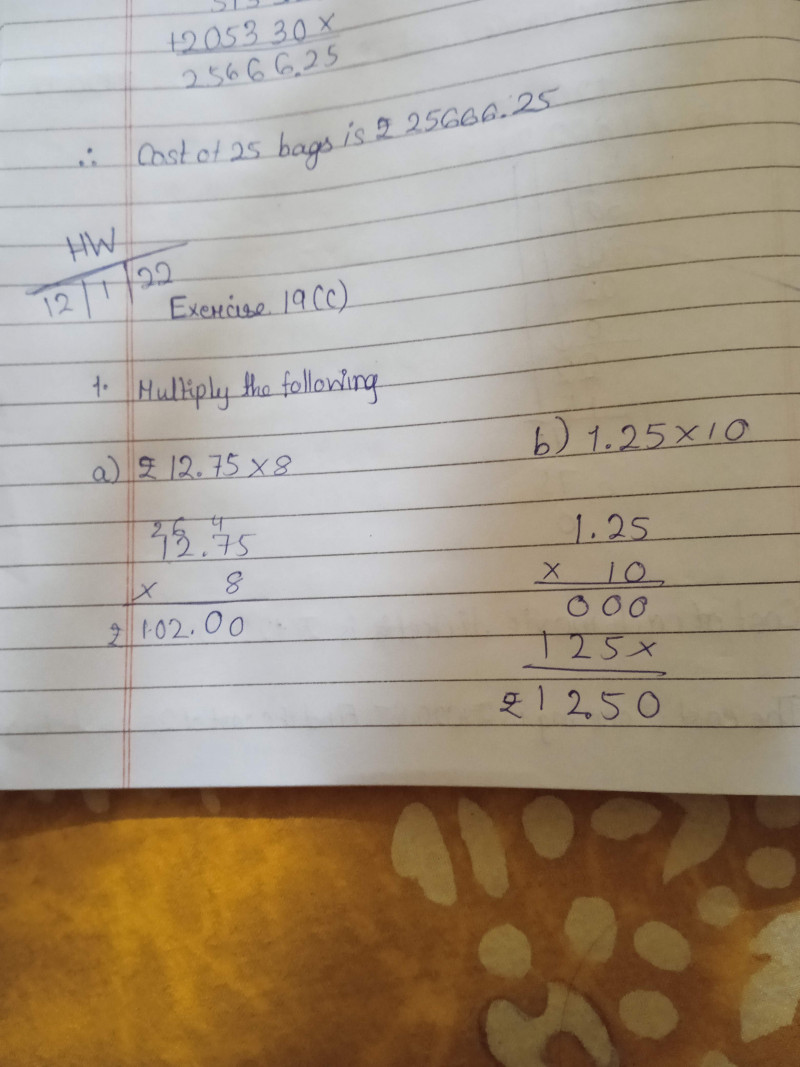 +205330x
25666.25
∴ Cost of 25 bags is ₹ 25666.25
HW
12|1|22
Exercise 19(c)
1. Multiply the following
a) ₹ 12.75 x 8
b) 1.25 x 10
2 6 4
12.75
x 8
₹ 102.00
1.25
x 10
000
125x
₹ 12.50